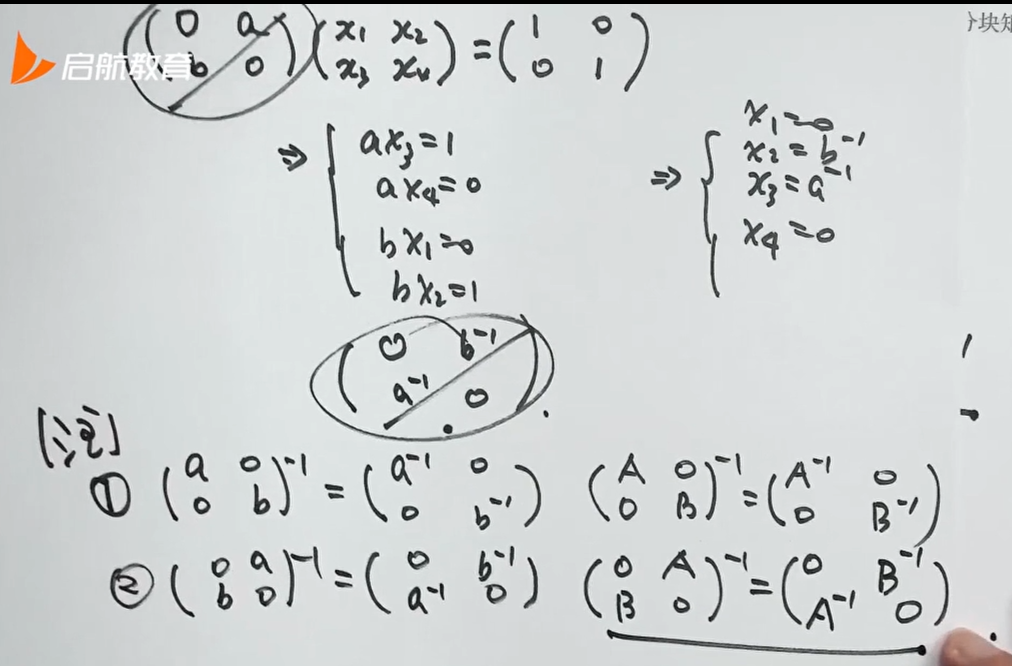 分块矩
启航教育
(0 a; b 0)(x₁ x₂; x₃ x₄) = (1 0; 0 1)
⇒ { ax₃=1
ax₄=0
bx₁=0
bx₂=1
⇒ { x₁=0
x₂=b⁻¹
x₃=a⁻¹
x₄=0
(0 b⁻¹; a⁻¹ 0).
[注]
① (a 0; 0 b)⁻¹ = (a⁻¹ 0; 0 b⁻¹) (A 0; 0 B)⁻¹ = (A⁻¹ 0; 0 B⁻¹)
② (0 a; b 0)⁻¹ = (0 b⁻¹; a⁻¹ 0) (0 A; B 0)⁻¹ = (0 B⁻¹; A⁻¹ 0).